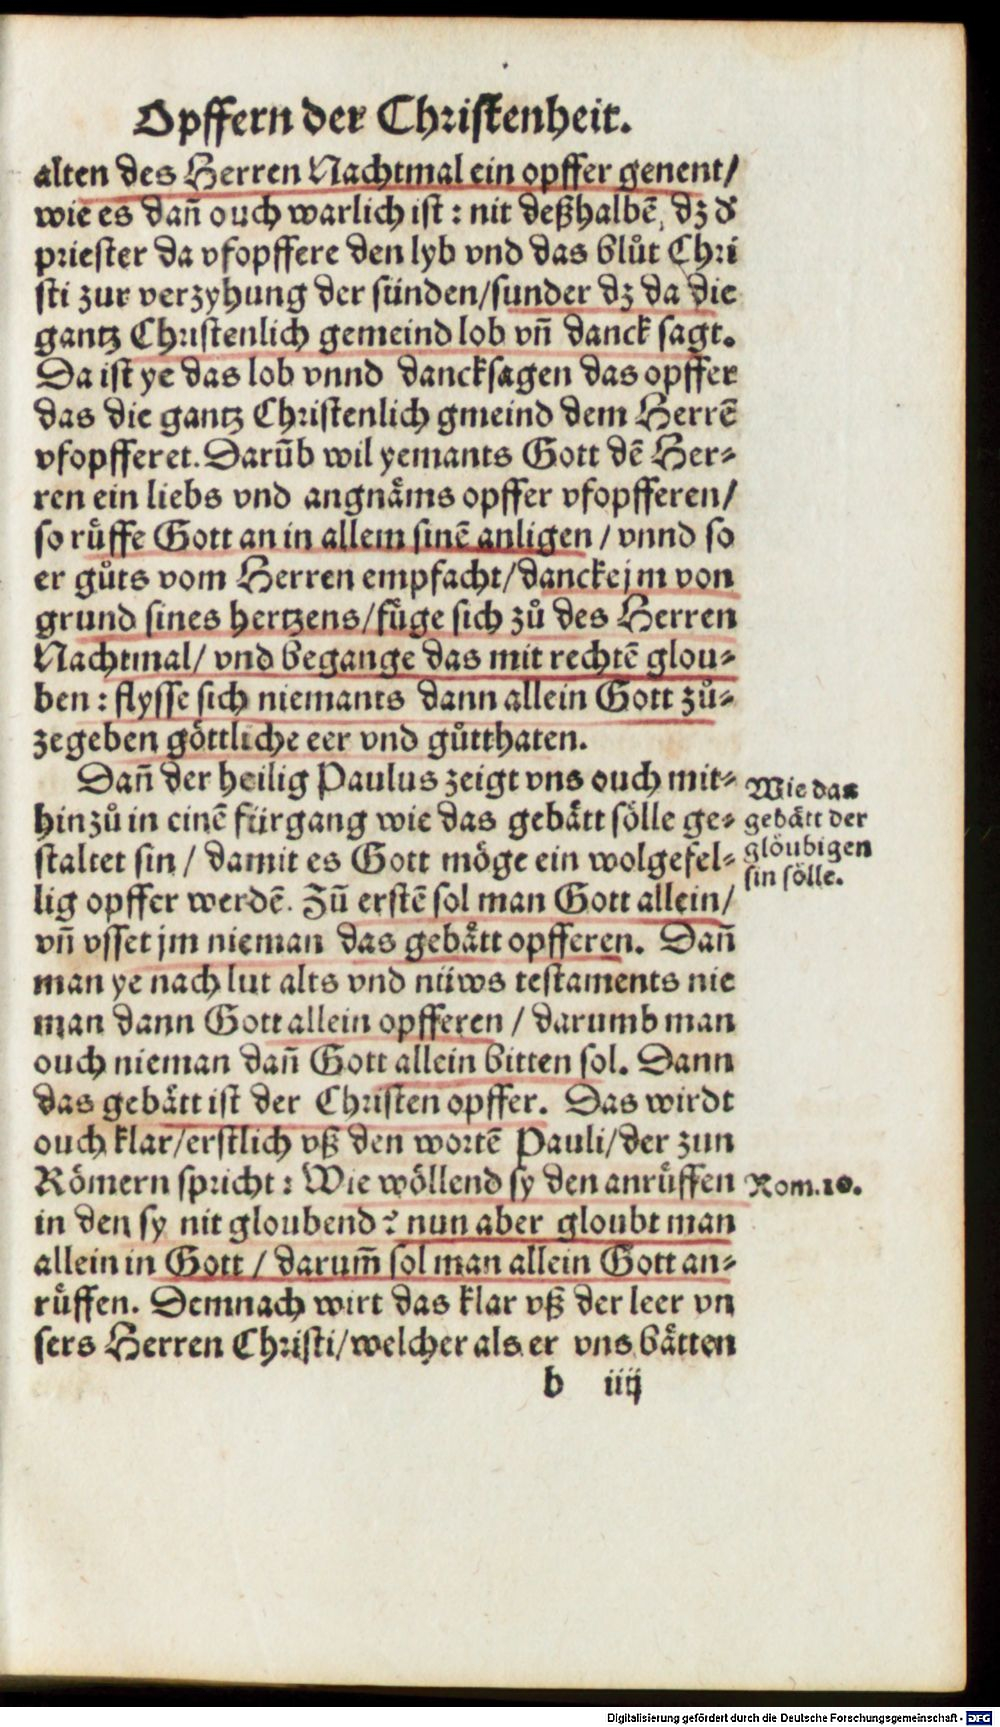 Opffern der Christenheit.
alten des Herren Nachtmal ein opffer genent/
wie es dañ ouch warlich ist : nit deßhalbẽ, dz d'
priester da vfopffere den lyb vnd das blůt Chri
sti zur verzyhung der sünden/sunder dz da die
gantz Christenlich gemeind lob vñ danck sagt.
Da ist ye das lob vnnd dancksagen das opffer
das die gantz Christenlich gmeind dem Herrẽ
vfopfferet. Darũb wil yemants Gott dẽ Her⸗
ren ein liebs vnd angnäms opffer vfopfferen/
so růffe Gott an in allem sinẽ anligen / vnnd so
er gůts vom Herren empfacht/dancke jm von
grund sines hertzens/füge sich zů des Herren
Nachtmal/ vnd begange das mit rechtẽ glou⸗
ben : flysse sich niemants dann allein Gott zů⸗
zegeben göttliche eer vnd gůtthaten.
Dañ der heilig Paulus zeigt vns ouch mit⸗
hinzů in einẽ fürgang wie das gebätt sölle ge⸗
staltet sin / damit es Gott möge ein wolgefel⸗
lig opffer werdẽ. Zũ erstẽ sol man Gott allein/
vñ vsset jm nieman das gebätt opfferen. Dañ
man ye nach lut alts vnd nüws testaments nie
man dann Gott allein opfferen / darumb man
ouch nieman dañ Gott allein bitten sol. Dann
das gebätt ist der Christen opffer. Das wirdt
ouch klar/erstlich vß den wortẽ Pauli/der zun
Römern spricht : Wie wöllend sy den anrůffen
in den sy nit gloubend? nun aber gloubt man
allein in Gott / darum̃ sol man allein Gott an⸗
růffen. Demnach wirt das klar vß der leer vn
sers Herren Christi/welcher als er vns bätten
b iiij
Wie das
gebätt der
glöubigen
sin sölle.
Rom.10.
Digitalisierung gefördert durch die Deutsche Forschungsgemeinschaft - DFG